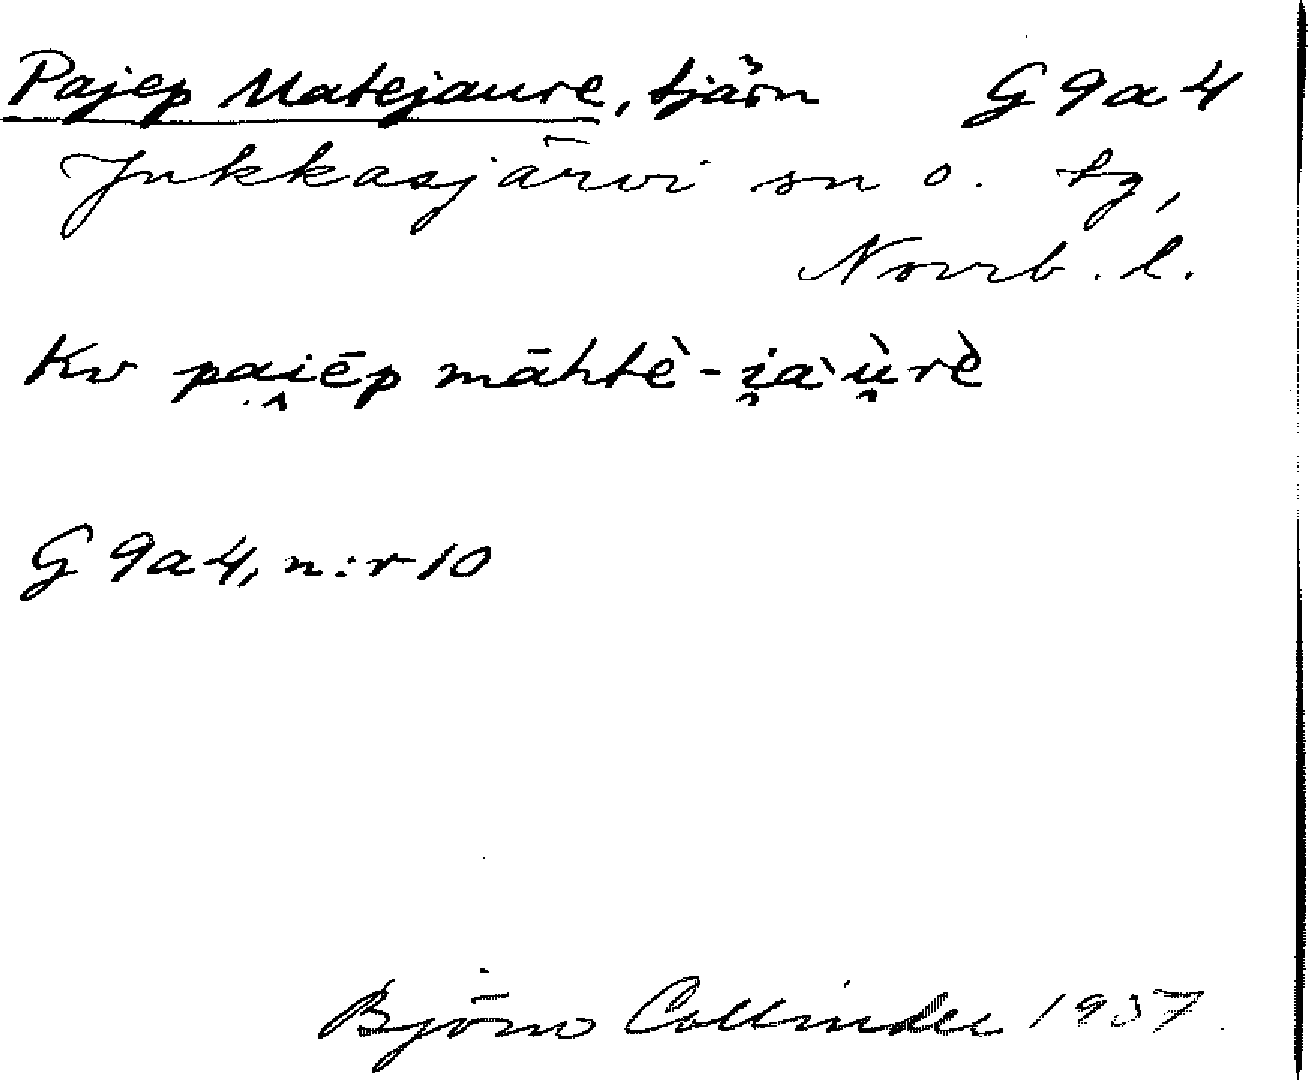 Pajep Matejaure, tjärn G 9a4
Jukkasjärvi sn o. tg,
Norrb. l.
Kv pai̯ēp māhtè-i̯aˋù̯rè
G 9a4, n:r 10
Björn Collinder 1937.